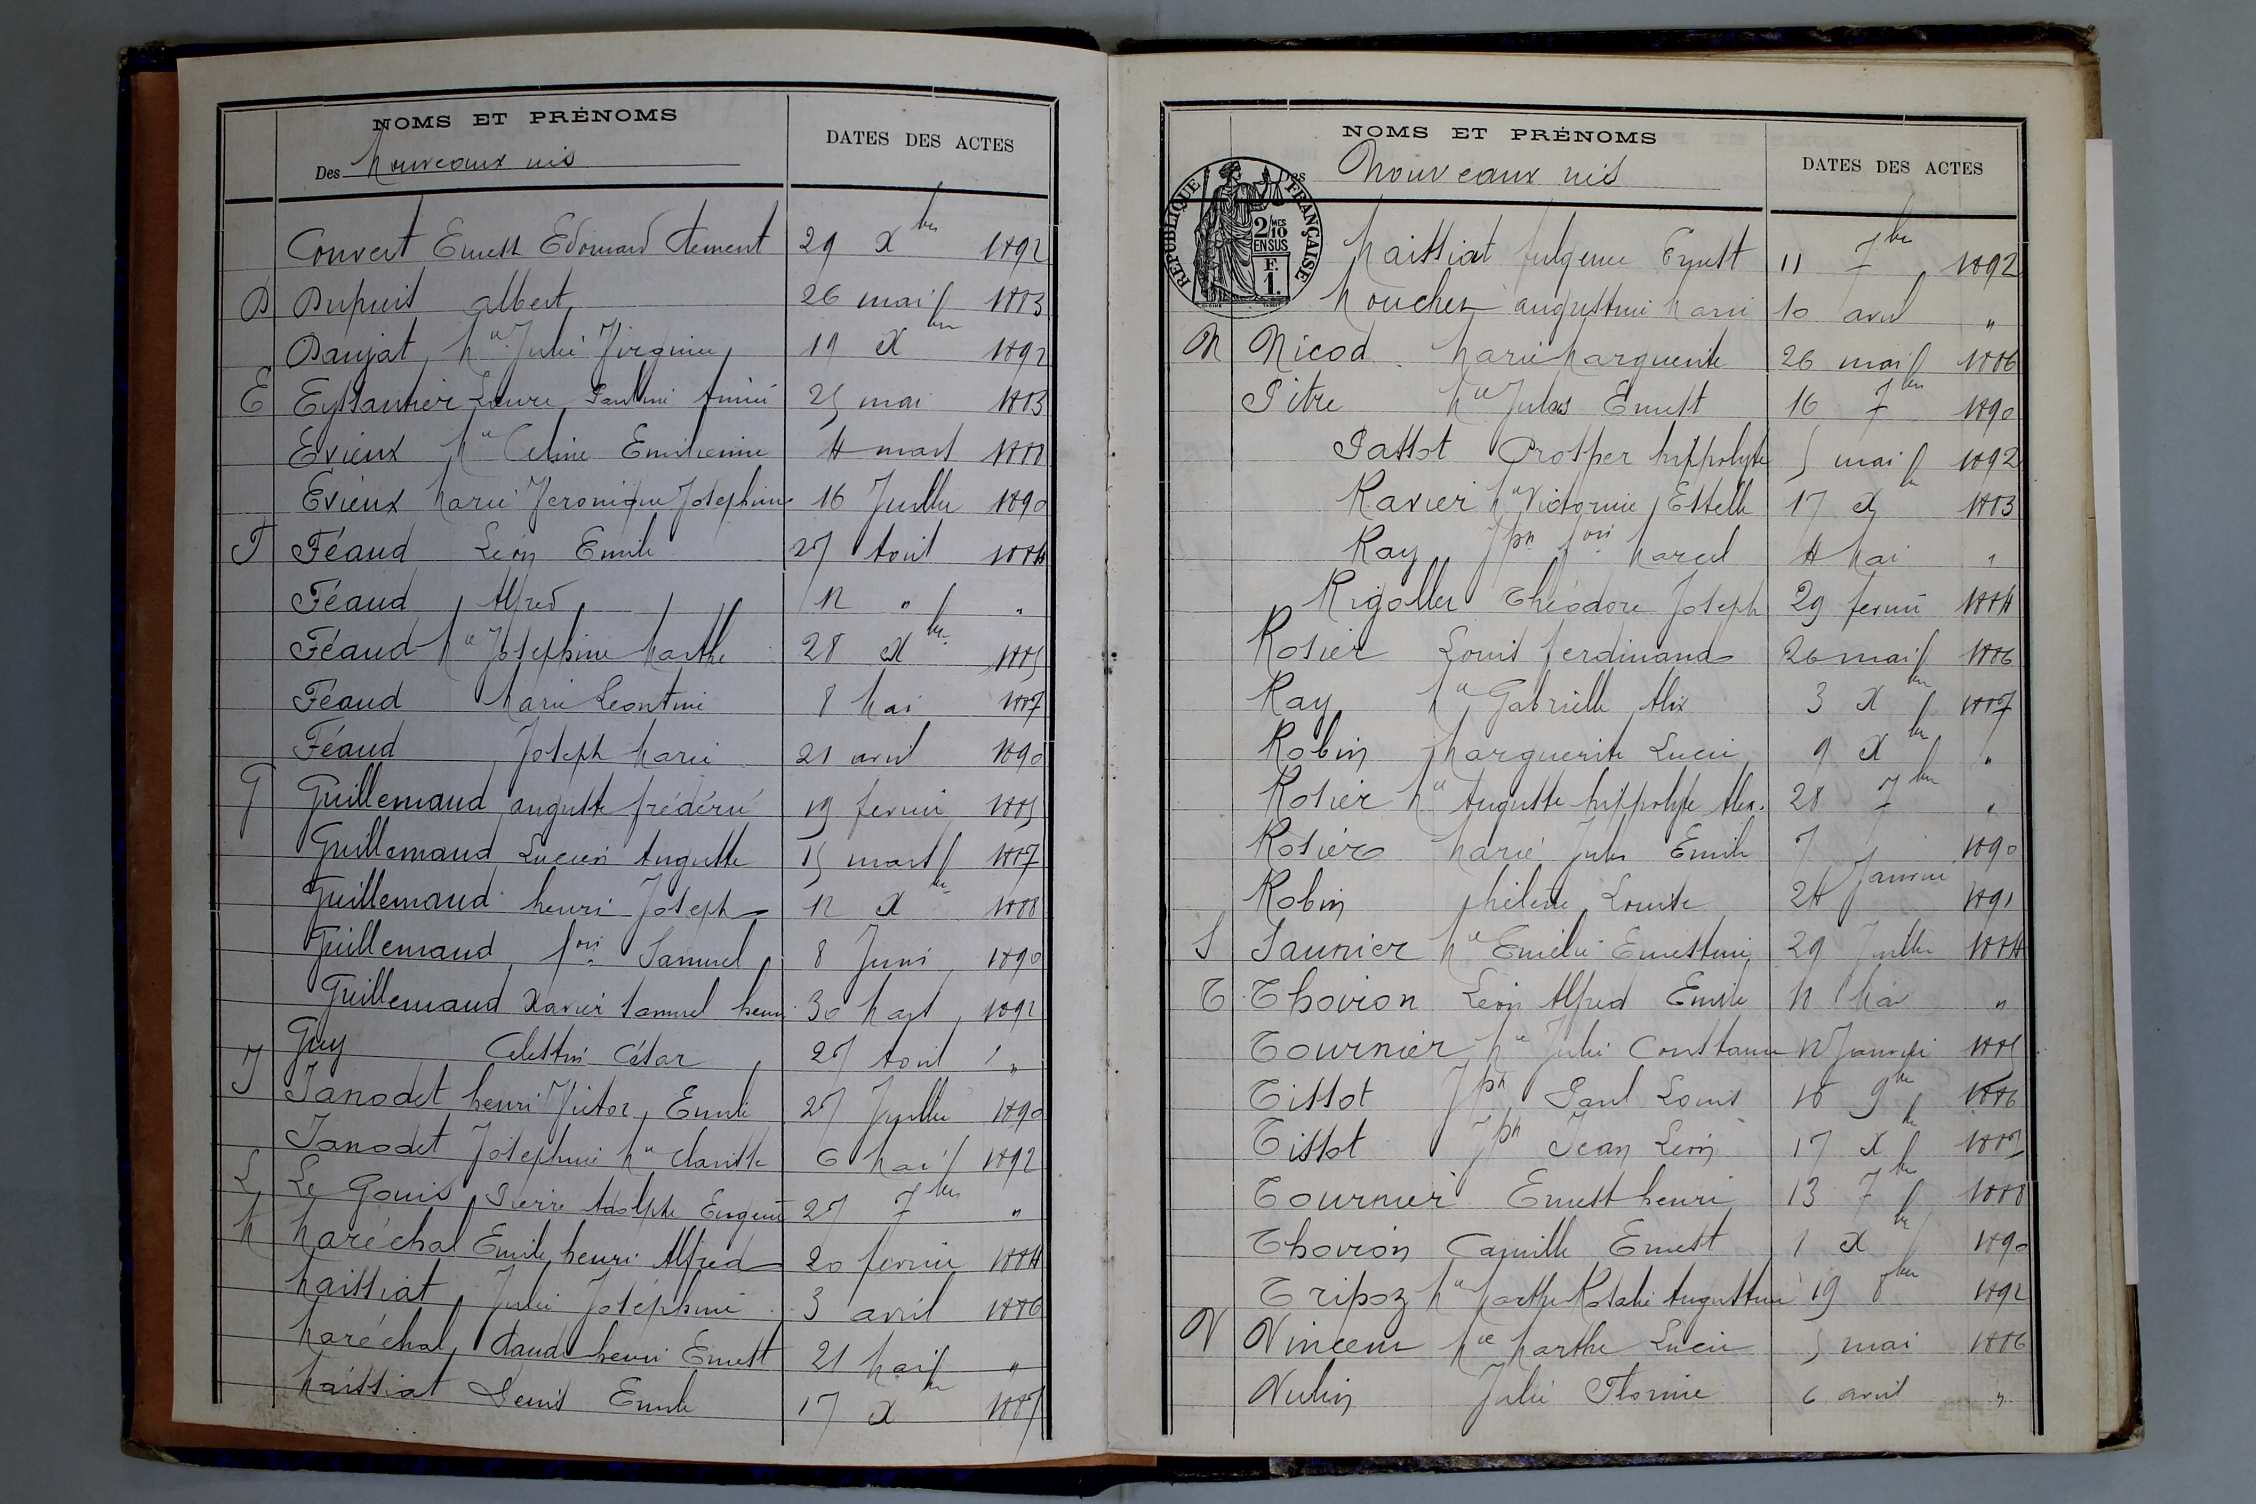 NOMS ET PRÉNOMS
Des Nouveaux nés
DATES DES ACTES
Convert Ernest Edouard Clément 29 Xbre 1892
D Dupuis Albert 26 mai 1883
Danjat Mie Julie Virginie 19 Xbre 1892
E Eyssautier Laure Pauline Aimée 25 mai 1883
Evieux Mie Céline Emilienne 4 mars 1888
Evieux Marie Véronique Joséphine 16 Juillet 1890
F Féaud Léon Emile 27 Aout 1884
Féaud Alfred 12 "
Féaud Mie Joséphine Marthe 28 Xbre 1885
Féaud Marie Léontine 8 Mai 1887
Féaud Joseph Marie 21 avril 1890
G Guillemaud auguste frédéric 19 fevrier 1885
Guillemaud Lucien Auguste 15 mars 1887
Guillemaud henri Joseph 12 Xbre 1888
Guillemaud Samuel 8 Juin 1890
Guillemaud Xavier Samuel henri 30 Mars 1892
Guy Célestin César 27 Aout "
J Janodet henri Victor Emile 27 Juillet 1890
Janodet Joséphine Mie 6 Mai 1892
L Le Gouis Pierre Adolphe Eugène 27 7bre "
M Maréchal Emile henri Alfred 20 fevrier 1884
Maissiat Julie Joséphine 3 avril 1886
Maréchal Claude henri Ernest 21 Mai "
Maissiat Denis Emile 17 X bre 1887
NOMS ET PRÉNOMS
Des Nouveaux nés
DATES DES ACTES
RÉPUBLIQUE FRANÇAISE
2/10 MES
EN SUS
F.
1.
Maissiat fulgence Ernest 11 7bre 1892
Mouchet augustine Marie 10 avril "
N Nicod Marie Marguerite 26 mai 1886
Pitre Mie Jules Ernest 16 7bre 1890
Passot Prosper hippolyte 5 mai 1892
Ravier Mie Victorine Estelle 17 Xbre 1883
Ray Jph Marcel 4 Mai "
Rigollet Théodore Joseph 29 fevrier 1884
Rosier Louis ferdinand 26 mai 1886
Ray Mie Gabrielle Alix 3 Xbre 1887
Robin Marguerite Lucie 9 Xbre "
Rosier Mie Auguste hippolyte Alex. 28 7bre "
Rosier Marie Jules Emile 7 1890
Robin hélène Louise 24 Janvier 1891
S Saunier Mie Emélie Ernestine 29 Juillet 1884
T Thovion Léon Alfred Emile Mai "
Tournier Mie Julie Constance 12 Janvier 1885
Tissot Jph Paul Louis 18 9bre 1886
Tissot Jph Jean Léon 17 Xbre 1887
Tournier Ernest henri 13 7bre 1888
Thovion Camille Ernest 1 Xbre 1890
Tripoz Mie Marthe Rosalie Augustine 19 8bre 1892
V Vincent Mie Marthe Lucie 5 mai 1886
Vulin Julie Florine 6 avril "